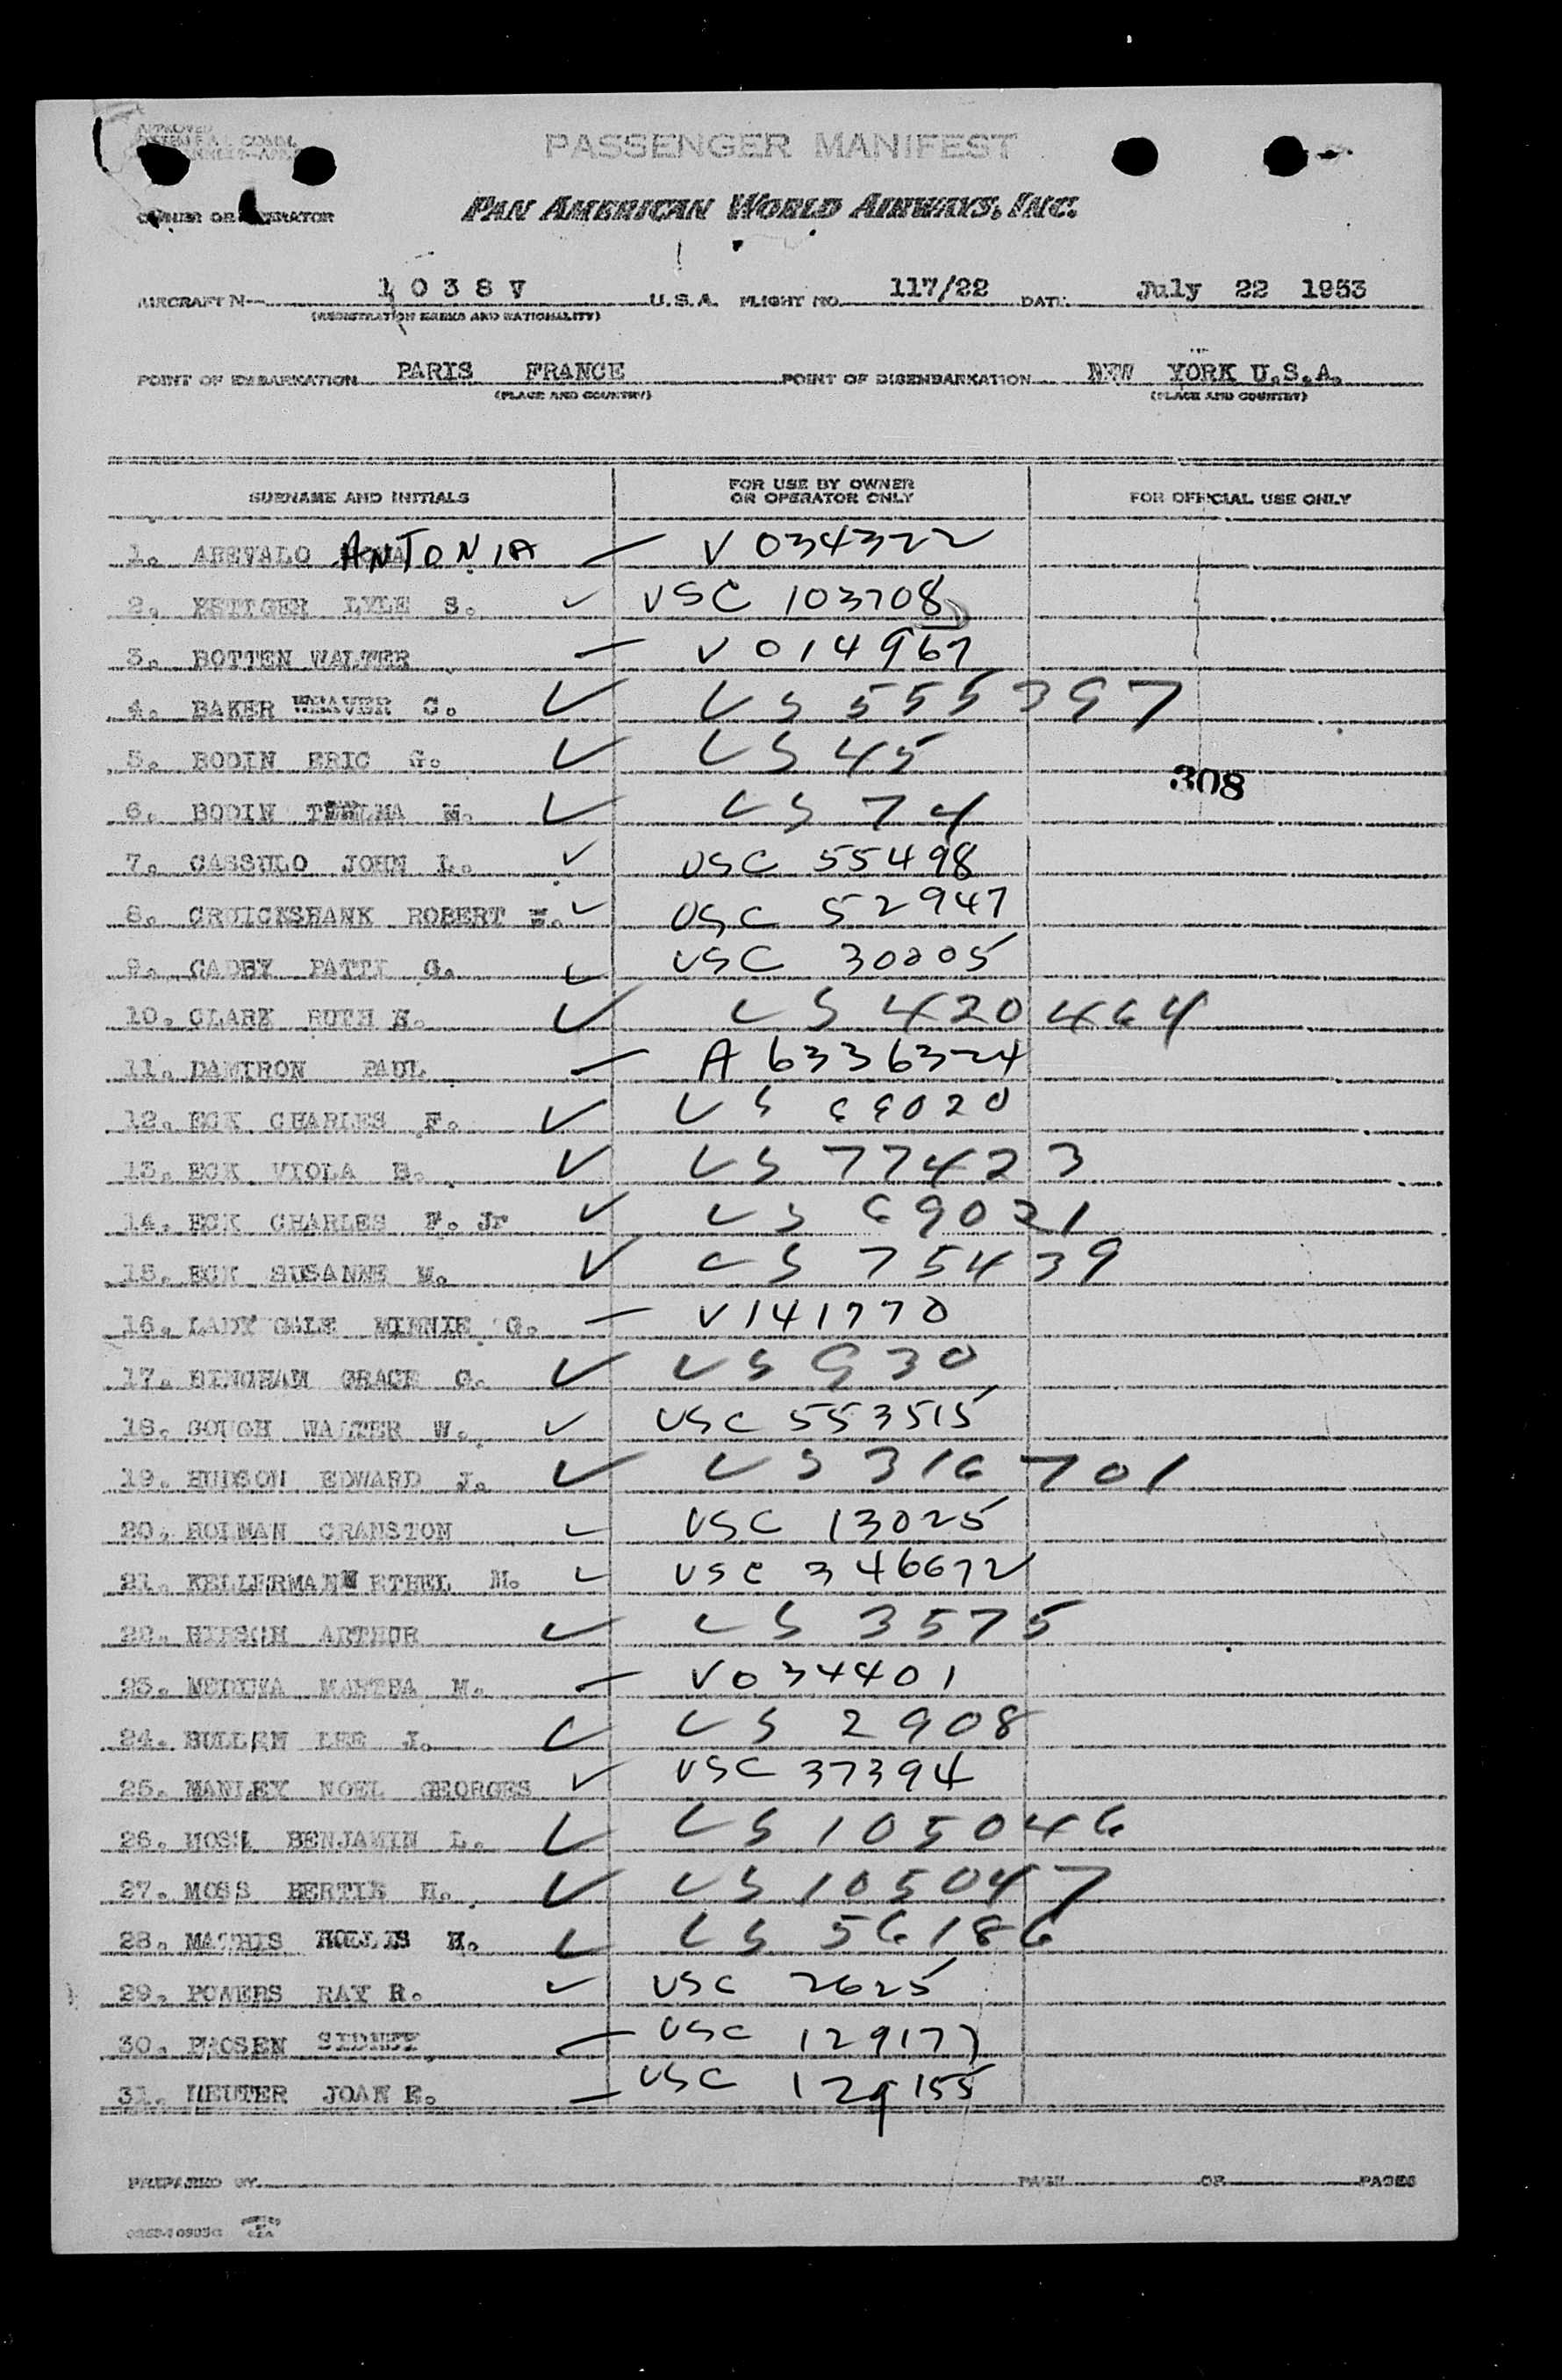 APPROVED
PASSENGER MANIFEST
OWNER OR OPERATOR PAN AMERICAN WORLD AIRWAYS, INC.
AIRCRAFT N- 1038V U.S.A. FLIGHT NO. 117/22 DATE July 22 1953
(REGISTRATION MARKS AND NATIONALITY)
POINT OF EMBARKATION PARIS FRANCE POINT OF DISEMBARKATION NEW YORK U.S.A.
(PLACE AND COUNTRY) (PLACE AND COUNTRY)
SURNAME AND INITIALS FOR USE BY OWNER OR OPERATOR ONLY FOR OFFICIAL USE ONLY
1. AREVALO ANTONIA — V 034322
2. LYLE S. ✓ USC 103708
3. BOTTEN WALTER — V 014967
4. BAKER WEAVER C. ✓ US 555397
5. BODIN ERIC G. ✓ US 45
308
6. BODIN THELMA M. ✓ US 74
7. CASSULO JOHN L. ✓ USC 55498
8. CRUICKSHANK ROBERT ✓ USC 52947
9. CADBY PATTY G. ✓ USC 30005
10. CLARK RUTH ✓ US 420464
11. DAMIRON PAUL — A 6336324
12. ECK CHARLES F. ✓ US 69020
13. ECK VIOLA B. ✓ US 77423
14. ECK CHARLES F. Jr ✓ US 69021
15. ECK SUSANNE M. ✓ US 75439
16. LADY GALE MINNIE G. — V 141770
17. BINGHAM GRACE G. ✓ US 930
18. GOUGH WALTER W. ✓ USC 553515
19. HUDSON EDWARD J. ✓ US 316701
20. HOLMAN CRANSTON ✓ USC 13025
21. KELLERMANN ETHEL M. ✓ USC 346672
22. HIRSCH ARTHUR ✓ US 3575
23. MEDINA MARTHA M. — V 034401
24. BULLEN LEE J. ✓ US 2908
25. MANLEY NOEL GEORGES ✓ USC 37394
26. MOSS BENJAMIN L. ✓ US 105046
27. MOSS BERTIE H. ✓ US 105047
28. MATHIS HOLLIS H. ✓ US 56186
29. POWERS RAY R. ✓ USC 2625
30. SIDNEY — USC 129177
31. REUTER JOAN E. — USC 129155
PREPARED BY PAGE OF PAGES